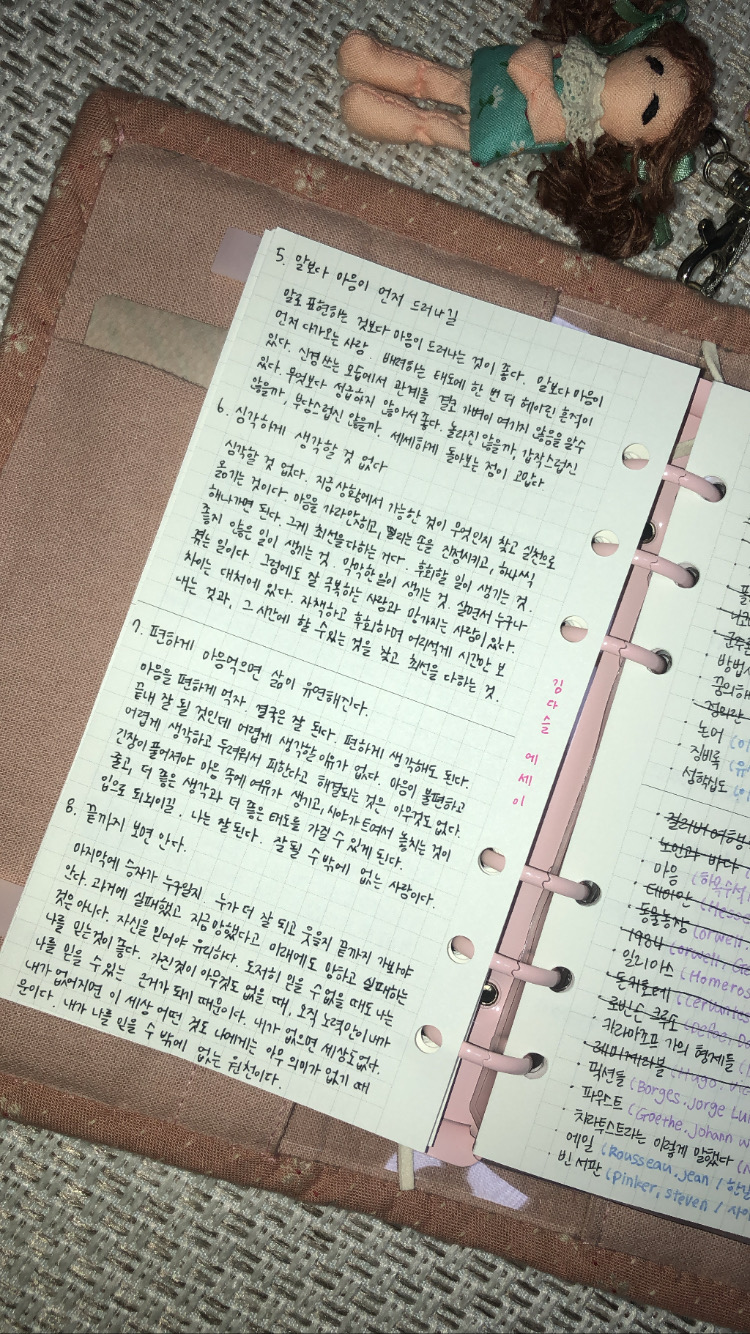 5. 말보다 마음이 먼저 드러나길
말로 표현하는 것보다 마음이 드러나는 것이 좋다. 말보다 마음이
먼저 다가오는 사람. 배려하는 태도에 한 번 더 헤아린 흔적이
있다. 신경쓰는 모습에서 관계를 결코 가벼이 여기지 않음을 알수
있다. 무엇보다 성급하지 않아서 좋다. 놀라진 않을까, 갑작스럽진
않을까, 부담스럽진 않을까. 세세하게 돌아보는 점이 고맙다
6. 심각하게 생각할 것 없다
심각할 것 없다. 지금 상황에서 가능한 것이 무엇인지 찾고 실천으로
옮기는 것이다. 마음을 가라앉히고, 떨리는 손을 진정시키고, 하나씩
해나가면 된다. 그게 최선을다하는 거다. 후회할 일이 생기는 것.
좋지 않은 일이 생기는 것. 막막한일이 생기는 것. 살면서 누구나
겪는 일이다. 그럼에도 잘 극복하는 사람과 망가지는 사람이 있다.
차이는 대처에 있다. 자책하고 후회하며 어리석게 시간만 보
내는 것과, 그 시간에 할 수있는 것을 찾고 최선을 다하는 것.
7. 편하게 마음먹으면 삶이 유연해진다.
마음을 편하게 먹자. 결국은 잘 된다. 편하게 생각해도 된다.
끝내 잘 될 것인데 어렵게 생각할 이유가 없다. 마음이 불편하고
어렵게 생각하고 두려워서 피한다고 해결되는 것은 아무것도 없다.
긴장이 풀어져야 마음 속에 여유가 생기고, 시야가 트여서 놓치는 것이
줄고, 더 좋은 생각과 더 좋은 태도를 가질 수 있게 된다.
입으로 되뇌이길. 나는 잘 된다. 잘 될 수 밖에 없는 사람이다.
8. 끝까지 보면 안다.
마지막에 승자가 누구일지. 누가 더 잘 되고 웃을지 끝까지 가봐야
안다. 과거에 실패했고 지금 망했다고 미래에도 망하고 실패하는
것은아니다. 자신을 믿어야 유리하다. 도저히 믿을 수 없을 때도 나는
나를 믿는것이 좋다. 가진것이 아무것도 없을 때, 오직 노력만이 내가
나를 믿을 수 있는 근거가 되기 때문이다. 내가 없으면 세상도없다.
내가 없어지면 이 세상 어떤 것도 나에게는 아무 의미가 없기 때
문이다. 내가 나를 믿을 수 밖에 없는 원천이다.
김다슬 에세이
군주론
방법서
꿈의해
논어
징비록
성학십도
걸리버 여행기
노인과 바다
마음
데미안 (Hesse
동물농장 (orwell
1984 (orwell, Ge
일리아스 (Homeros
돈키호테 (Cervantes
로빈슨 크루소 (Defoe, Da
카라마조프 가의 형제들
레미제라블 (Hugo, Vic
픽션들 (Borges, Jorge Lui
파우스트 (Goethe, Johann w
차라투스트라는 이렇게 말했다
에밀 (Rousseau, Jean /
빈 서판 (pinker, steven /